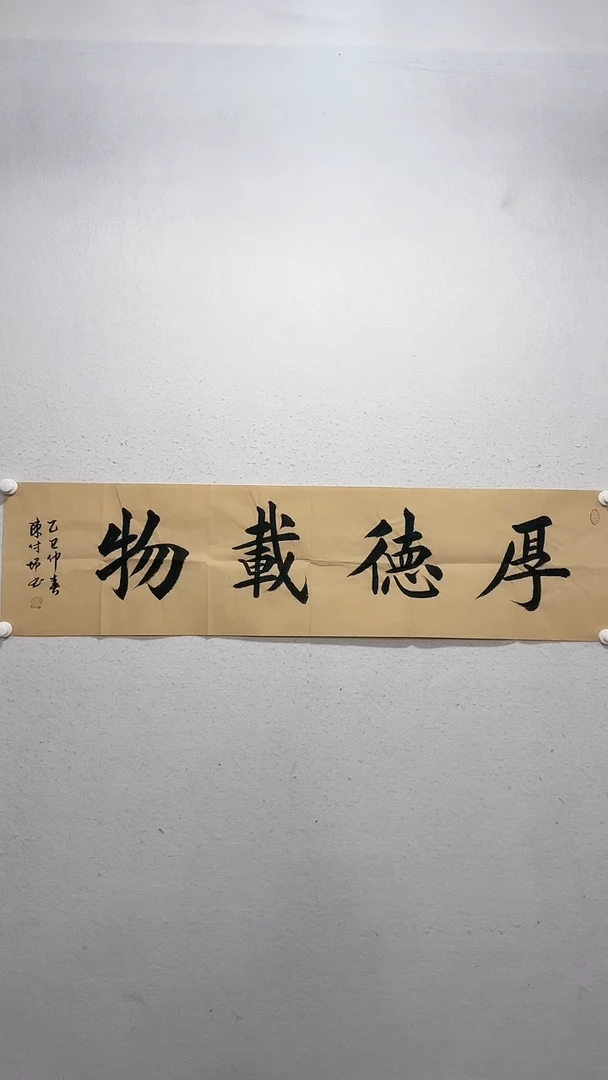 厚德載物
乙巳仲春
陳付